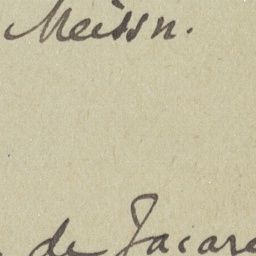 Meissn.
de Jacare